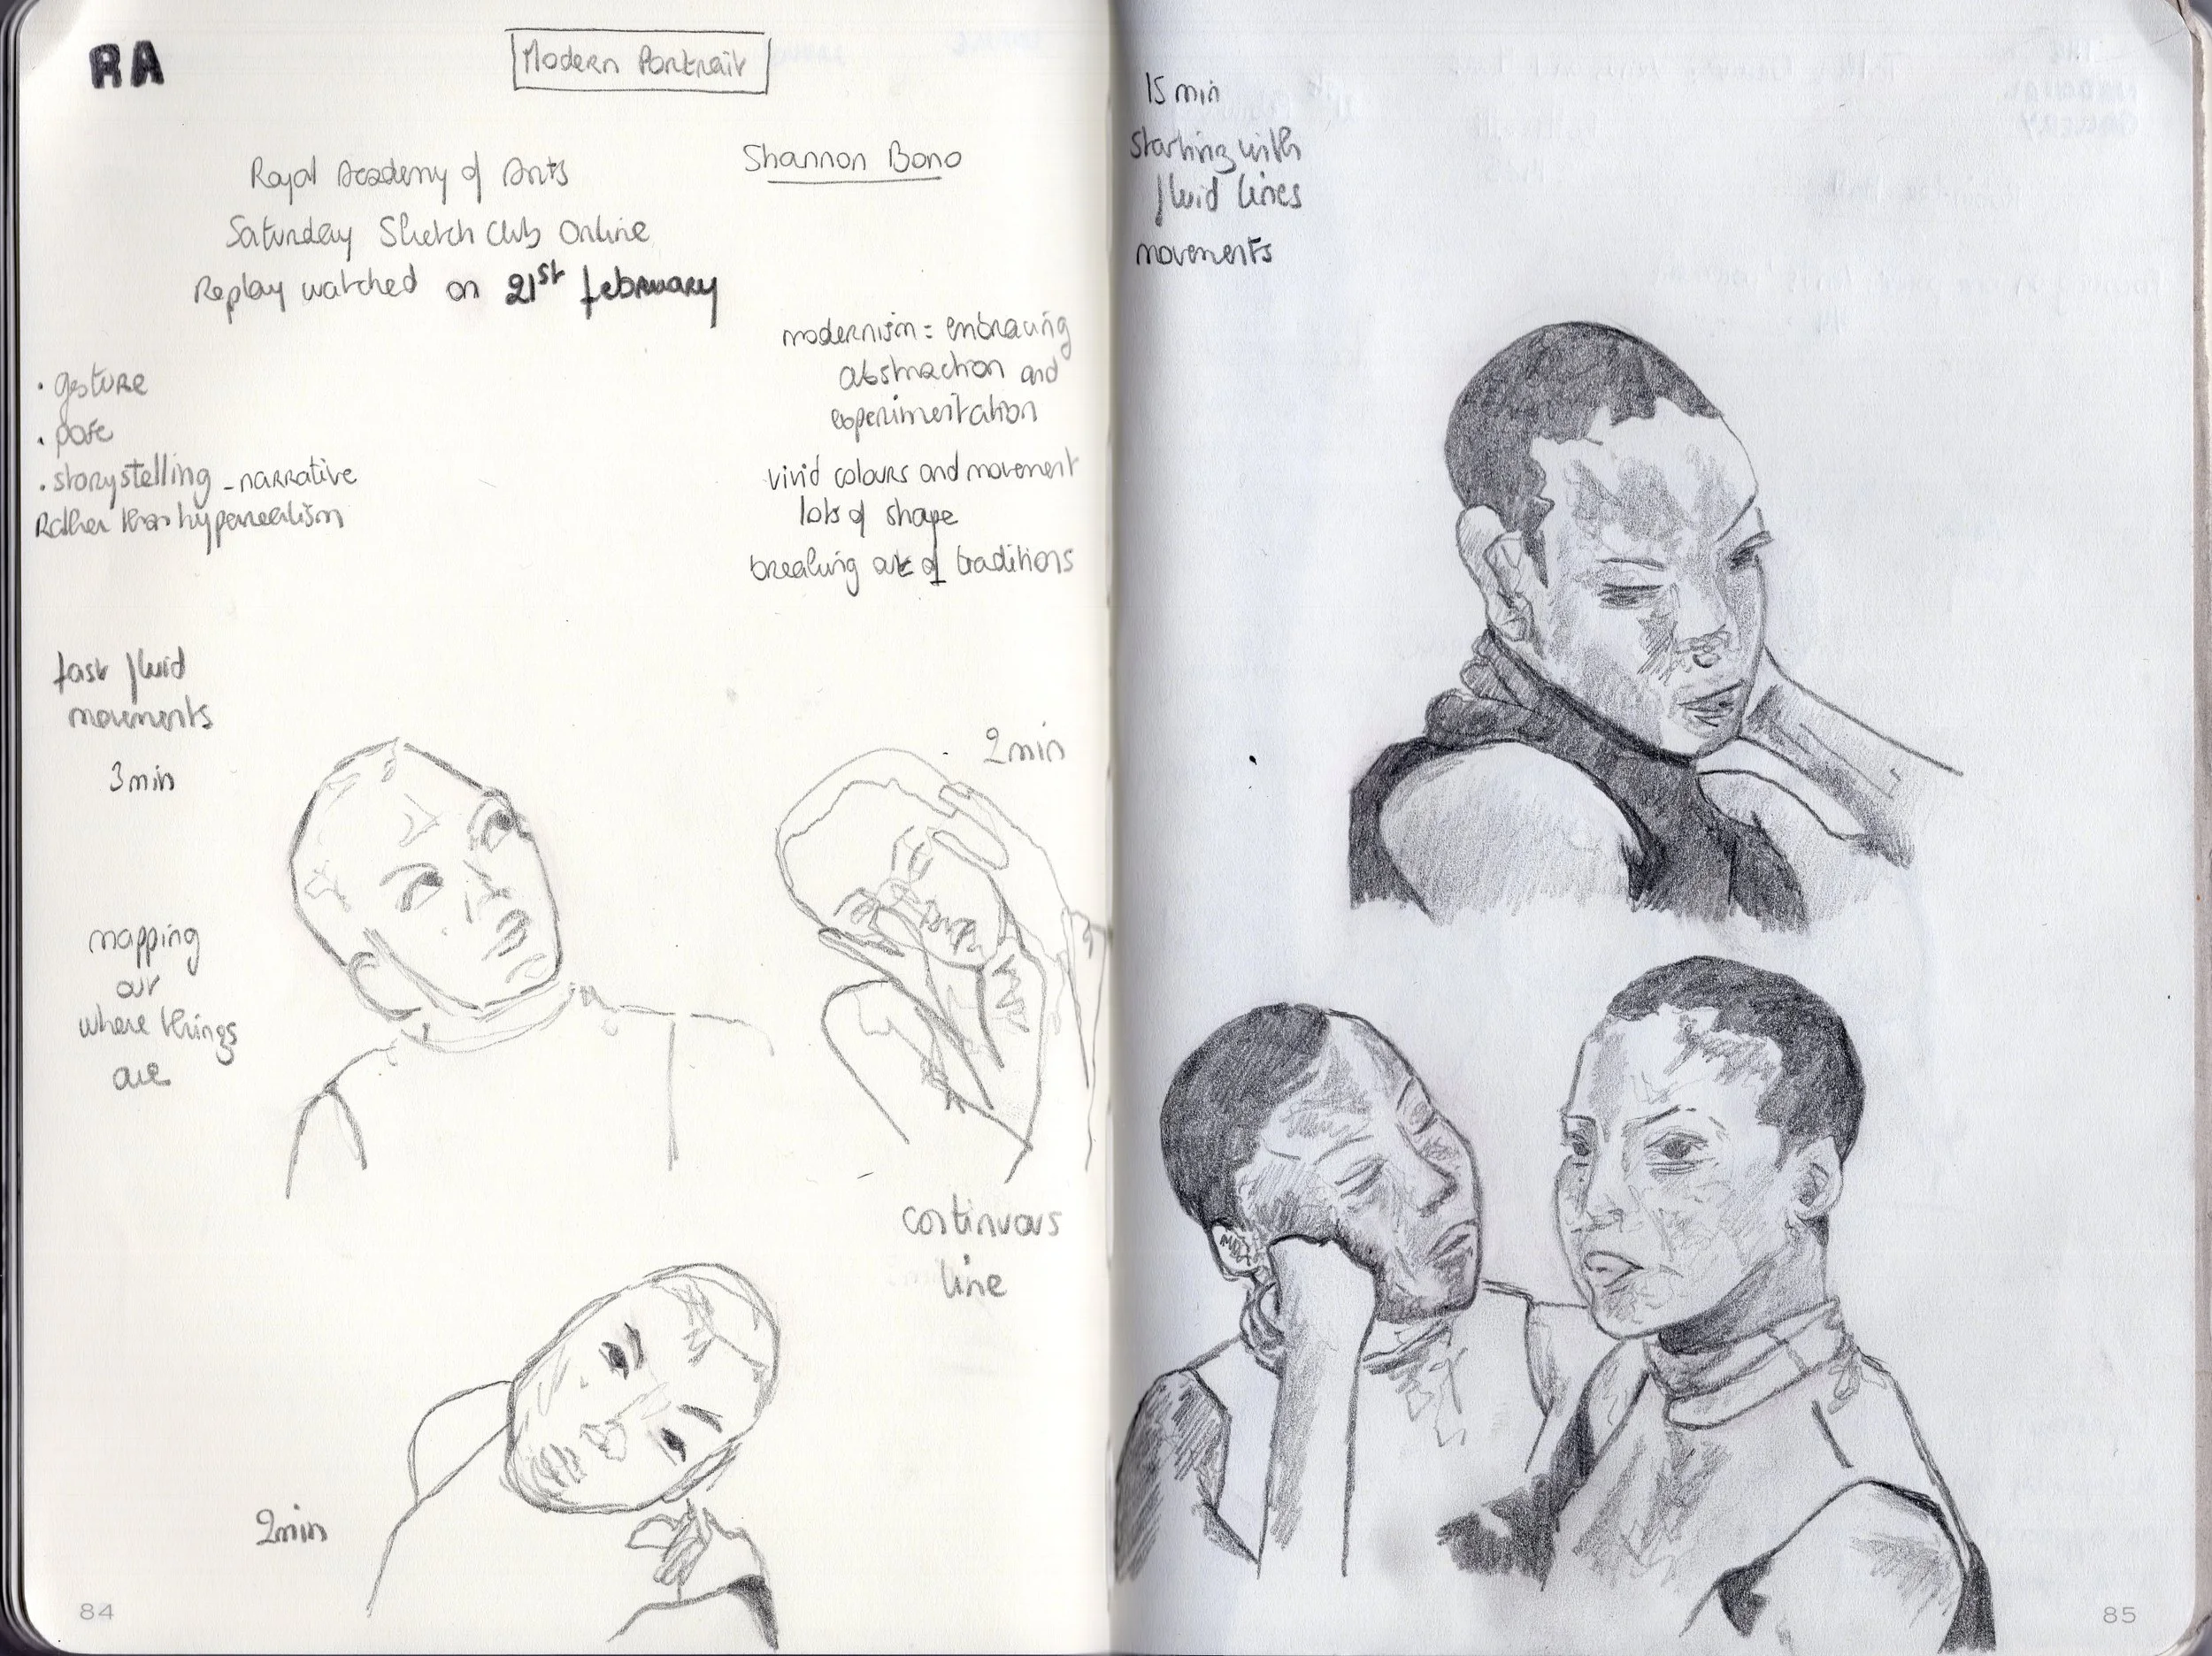 RA
Modern Portrait
Royal Academy of Arts
Saturday Sketch Club Online
Replay watched on 21st february
Shannon Bono
. gesture
. pose
. storystelling - narrative
Rather than hyperrealism
modernism = embracing
abstraction and
experimentation
vivid colours and movement
lots of shape
breaking out of traditions
fast fluid
movements
3 min
2 min
mapping
out
where things
are
continuous
line
2 min
84
15 min
starting with
fluid lines
movements
85